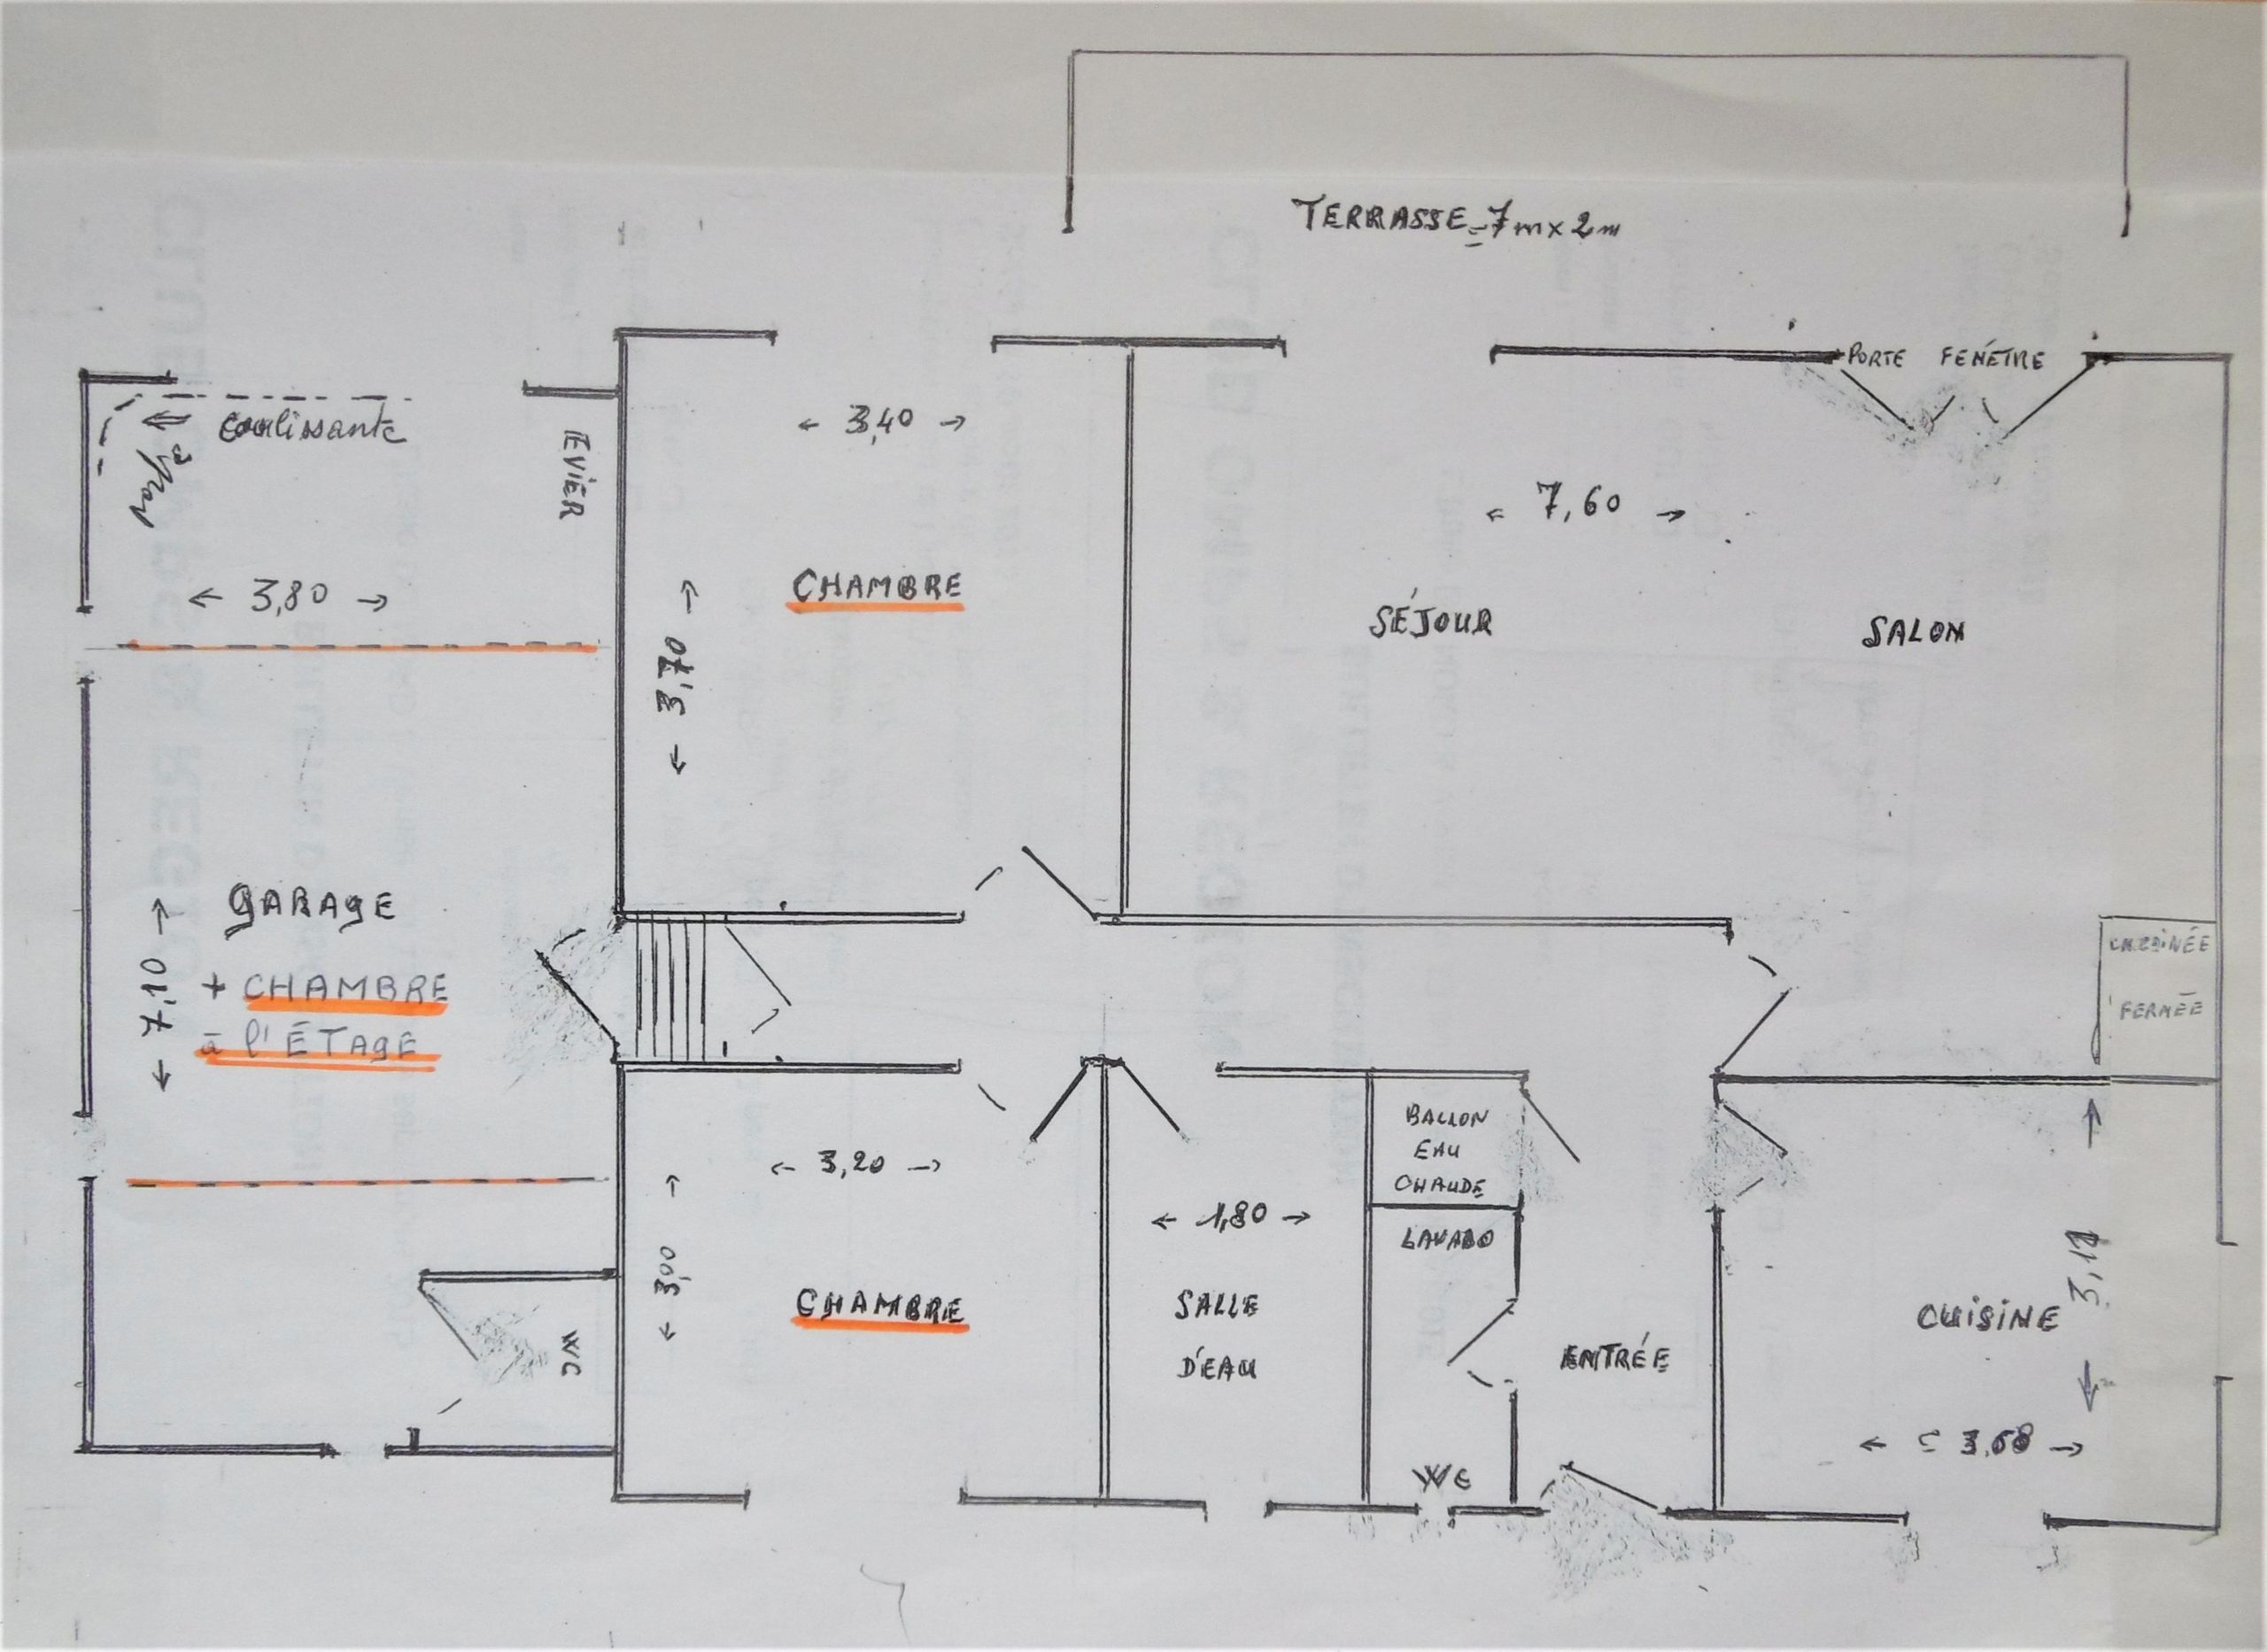 TERRASSE = 7m x 2m
PORTE FENÊTRE
coulissante
EVIER
← 3,40 →
← 7,60 →
← 3,80 →
CHAMBRE
← 3,70 →
SÉJOUR
SALON
GARAGE
+ CHAMBRE
à l'ÉTAGE
← 7,10 →
CHEMINÉE
FERMÉE
BALLON
EAU
CHAUDE
← 3,20 →
← 1,80 →
LAVABO
← 3,00 →
CHAMBRE
SALLE
D'EAU
ENTRÉE
CUISINE
WC
← 3,68 →
WC